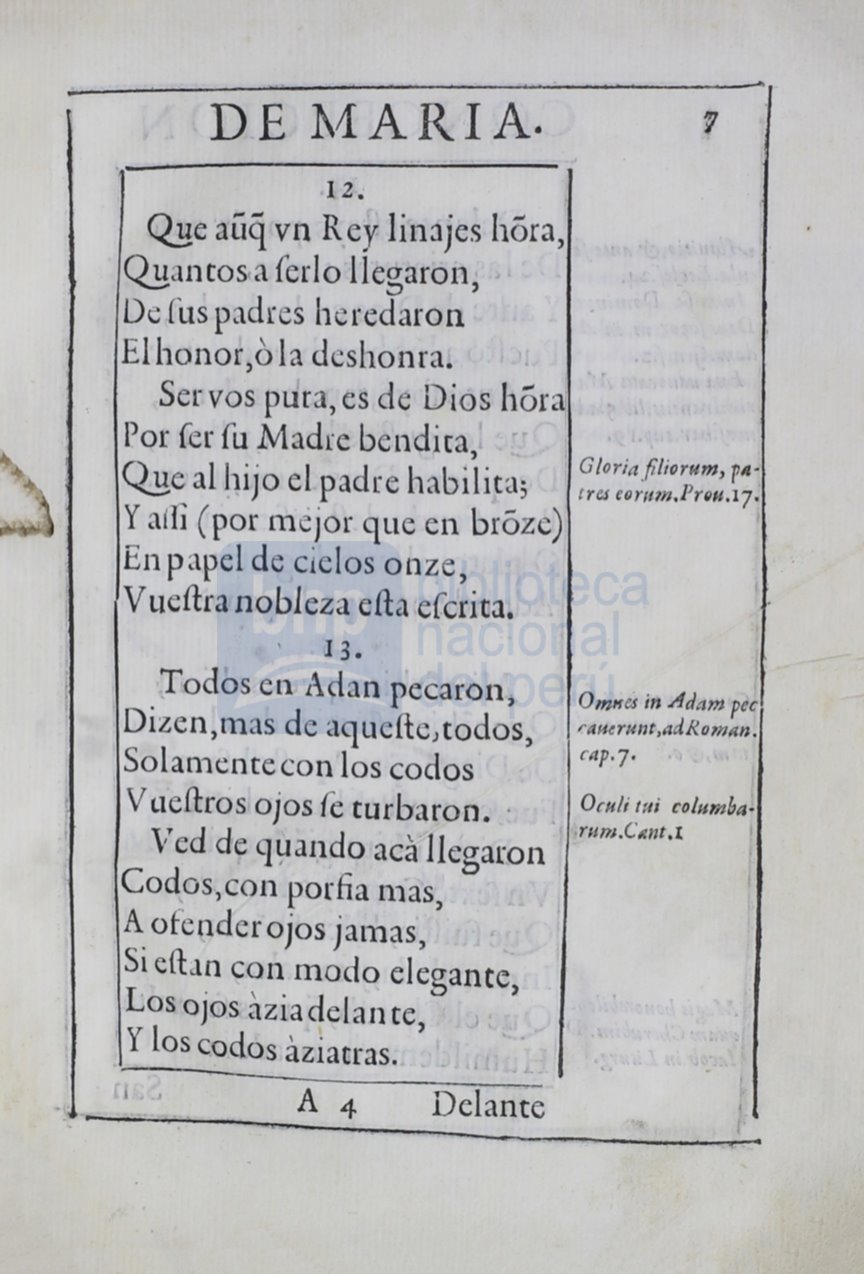 DE MARIA. 7
12.
Que aũq̃ vn Rey linajes hõra,
Quantos a ſerlo llegaron,
De ſus padres heredaron
El honor, ò la deshonra.
Ser vos pura, es de Dios hõra
Por ſer ſu Madre bendita,
Que al hijo el padre habilita;
Y aſſi (por mejor que en brõze)
En papel de cielos onze,
Vueſtra nobleza eſta eſcrita.
Gloria filiorum, pa-
tres eorum. Prou. 17.
13.
Todos en Adan pecaron,
Dizen, mas de aqueſte, todos,
Solamente con los codos
Vueſtros ojos ſe turbaron.
Ved de quando acà llegaron
Codos, con porfia mas,
A ofender ojos jamas,
Si eſtan con modo elegante,
Los ojos àzia delante,
Y los codos àzia tras.
Omnes in Adam pec
cauerunt, ad Roman.
cap. 7.
Oculi tui columba-
rum. Cant. 1
A 4 Delante
bnp biblioteca
nacional
del perú